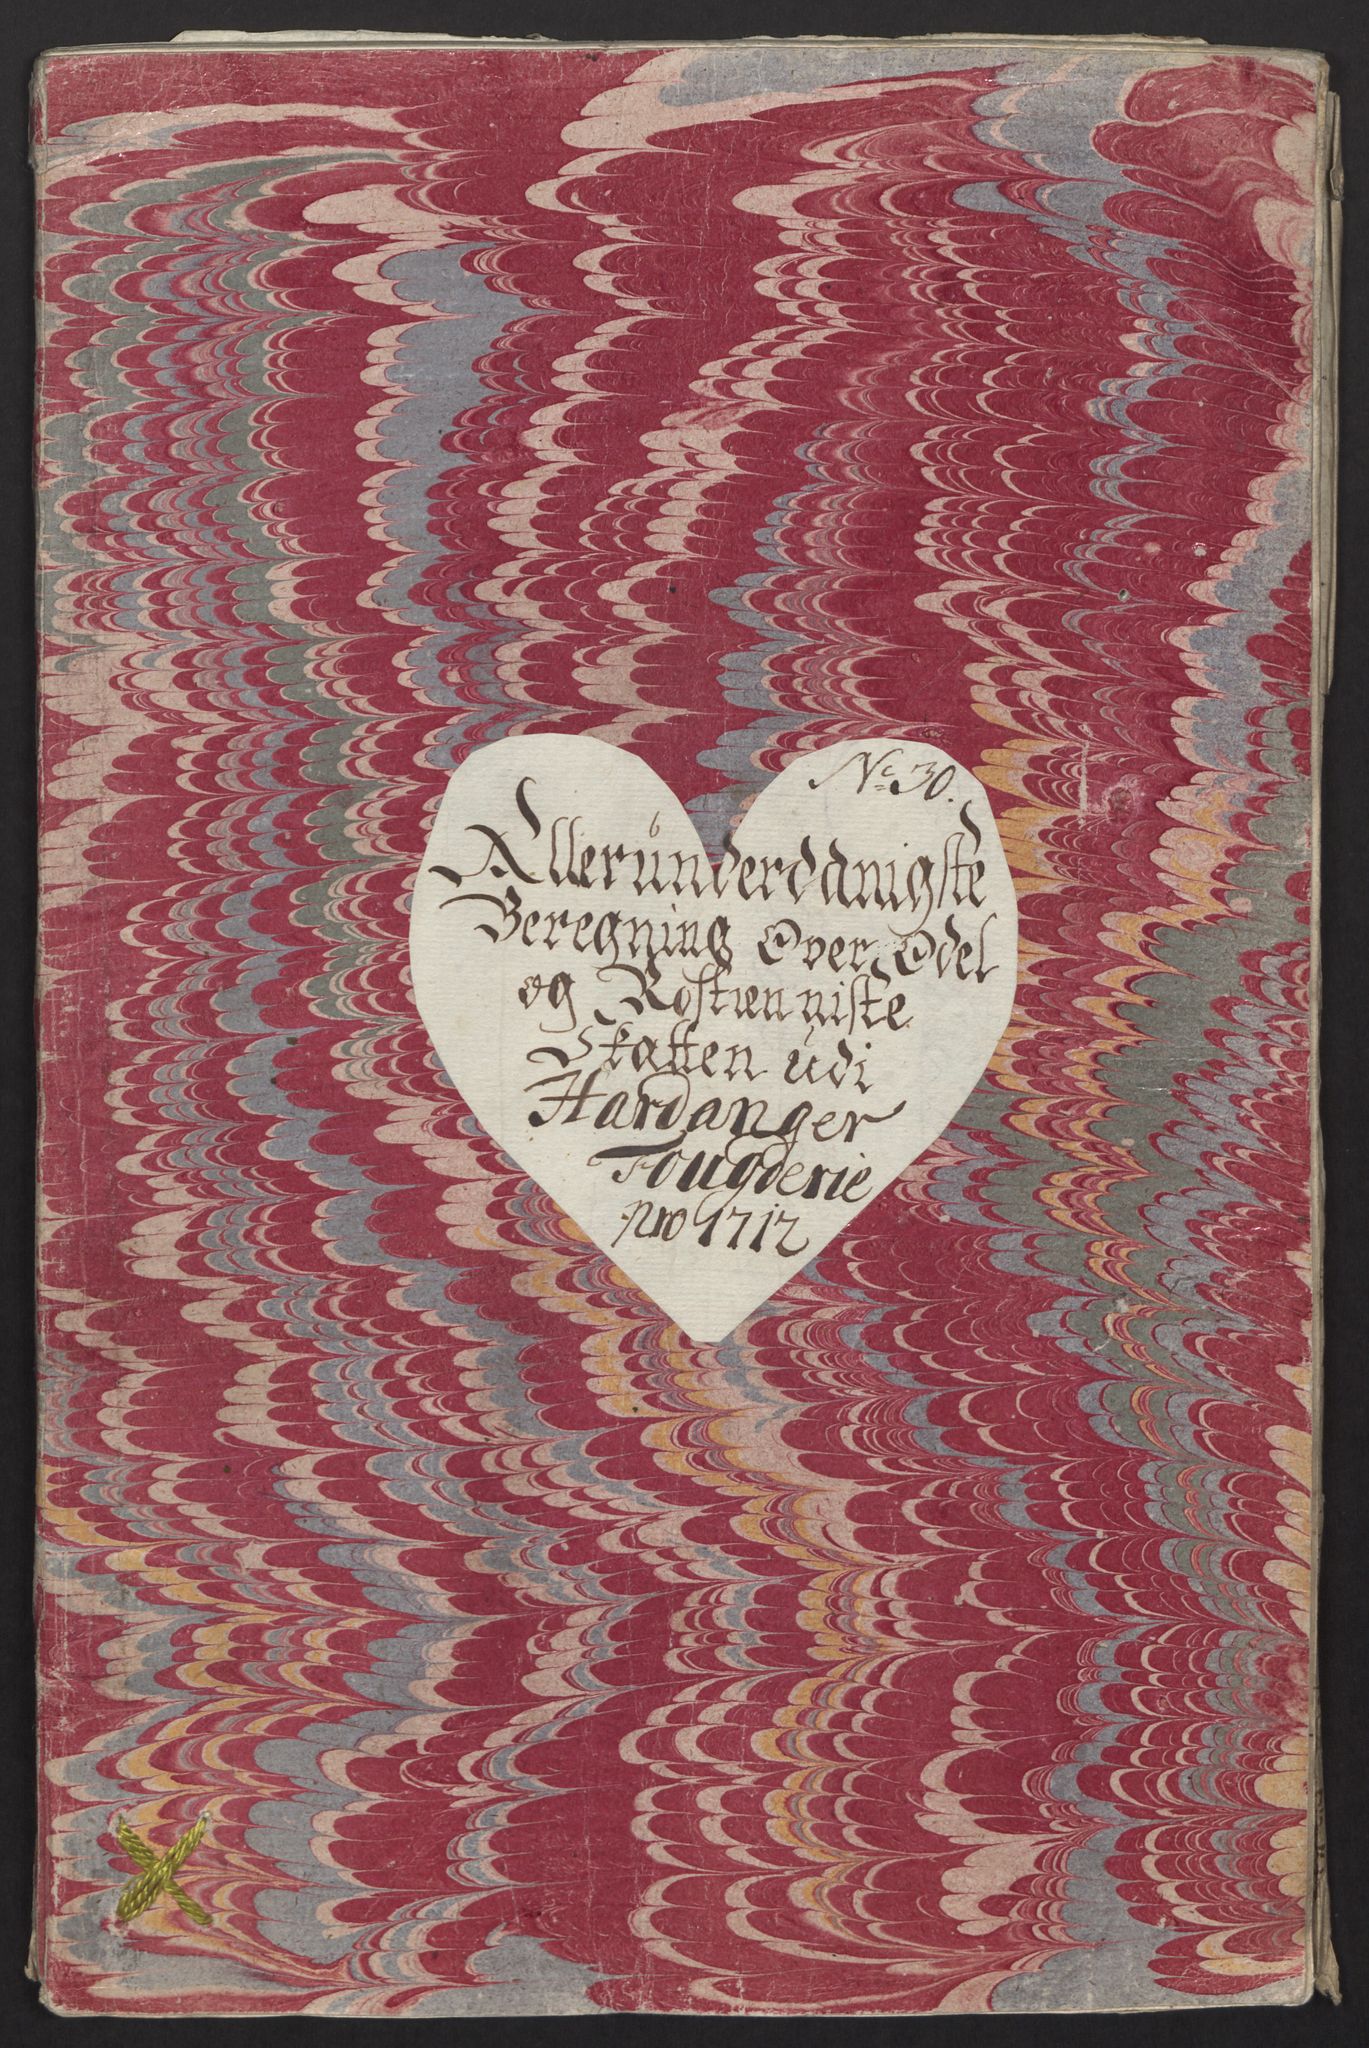 No 30.
Allerúnderdanigste
Beregning Over Odel
og Rostienniste
Skatten udi
Hardanger
Fougderie
pro 1712